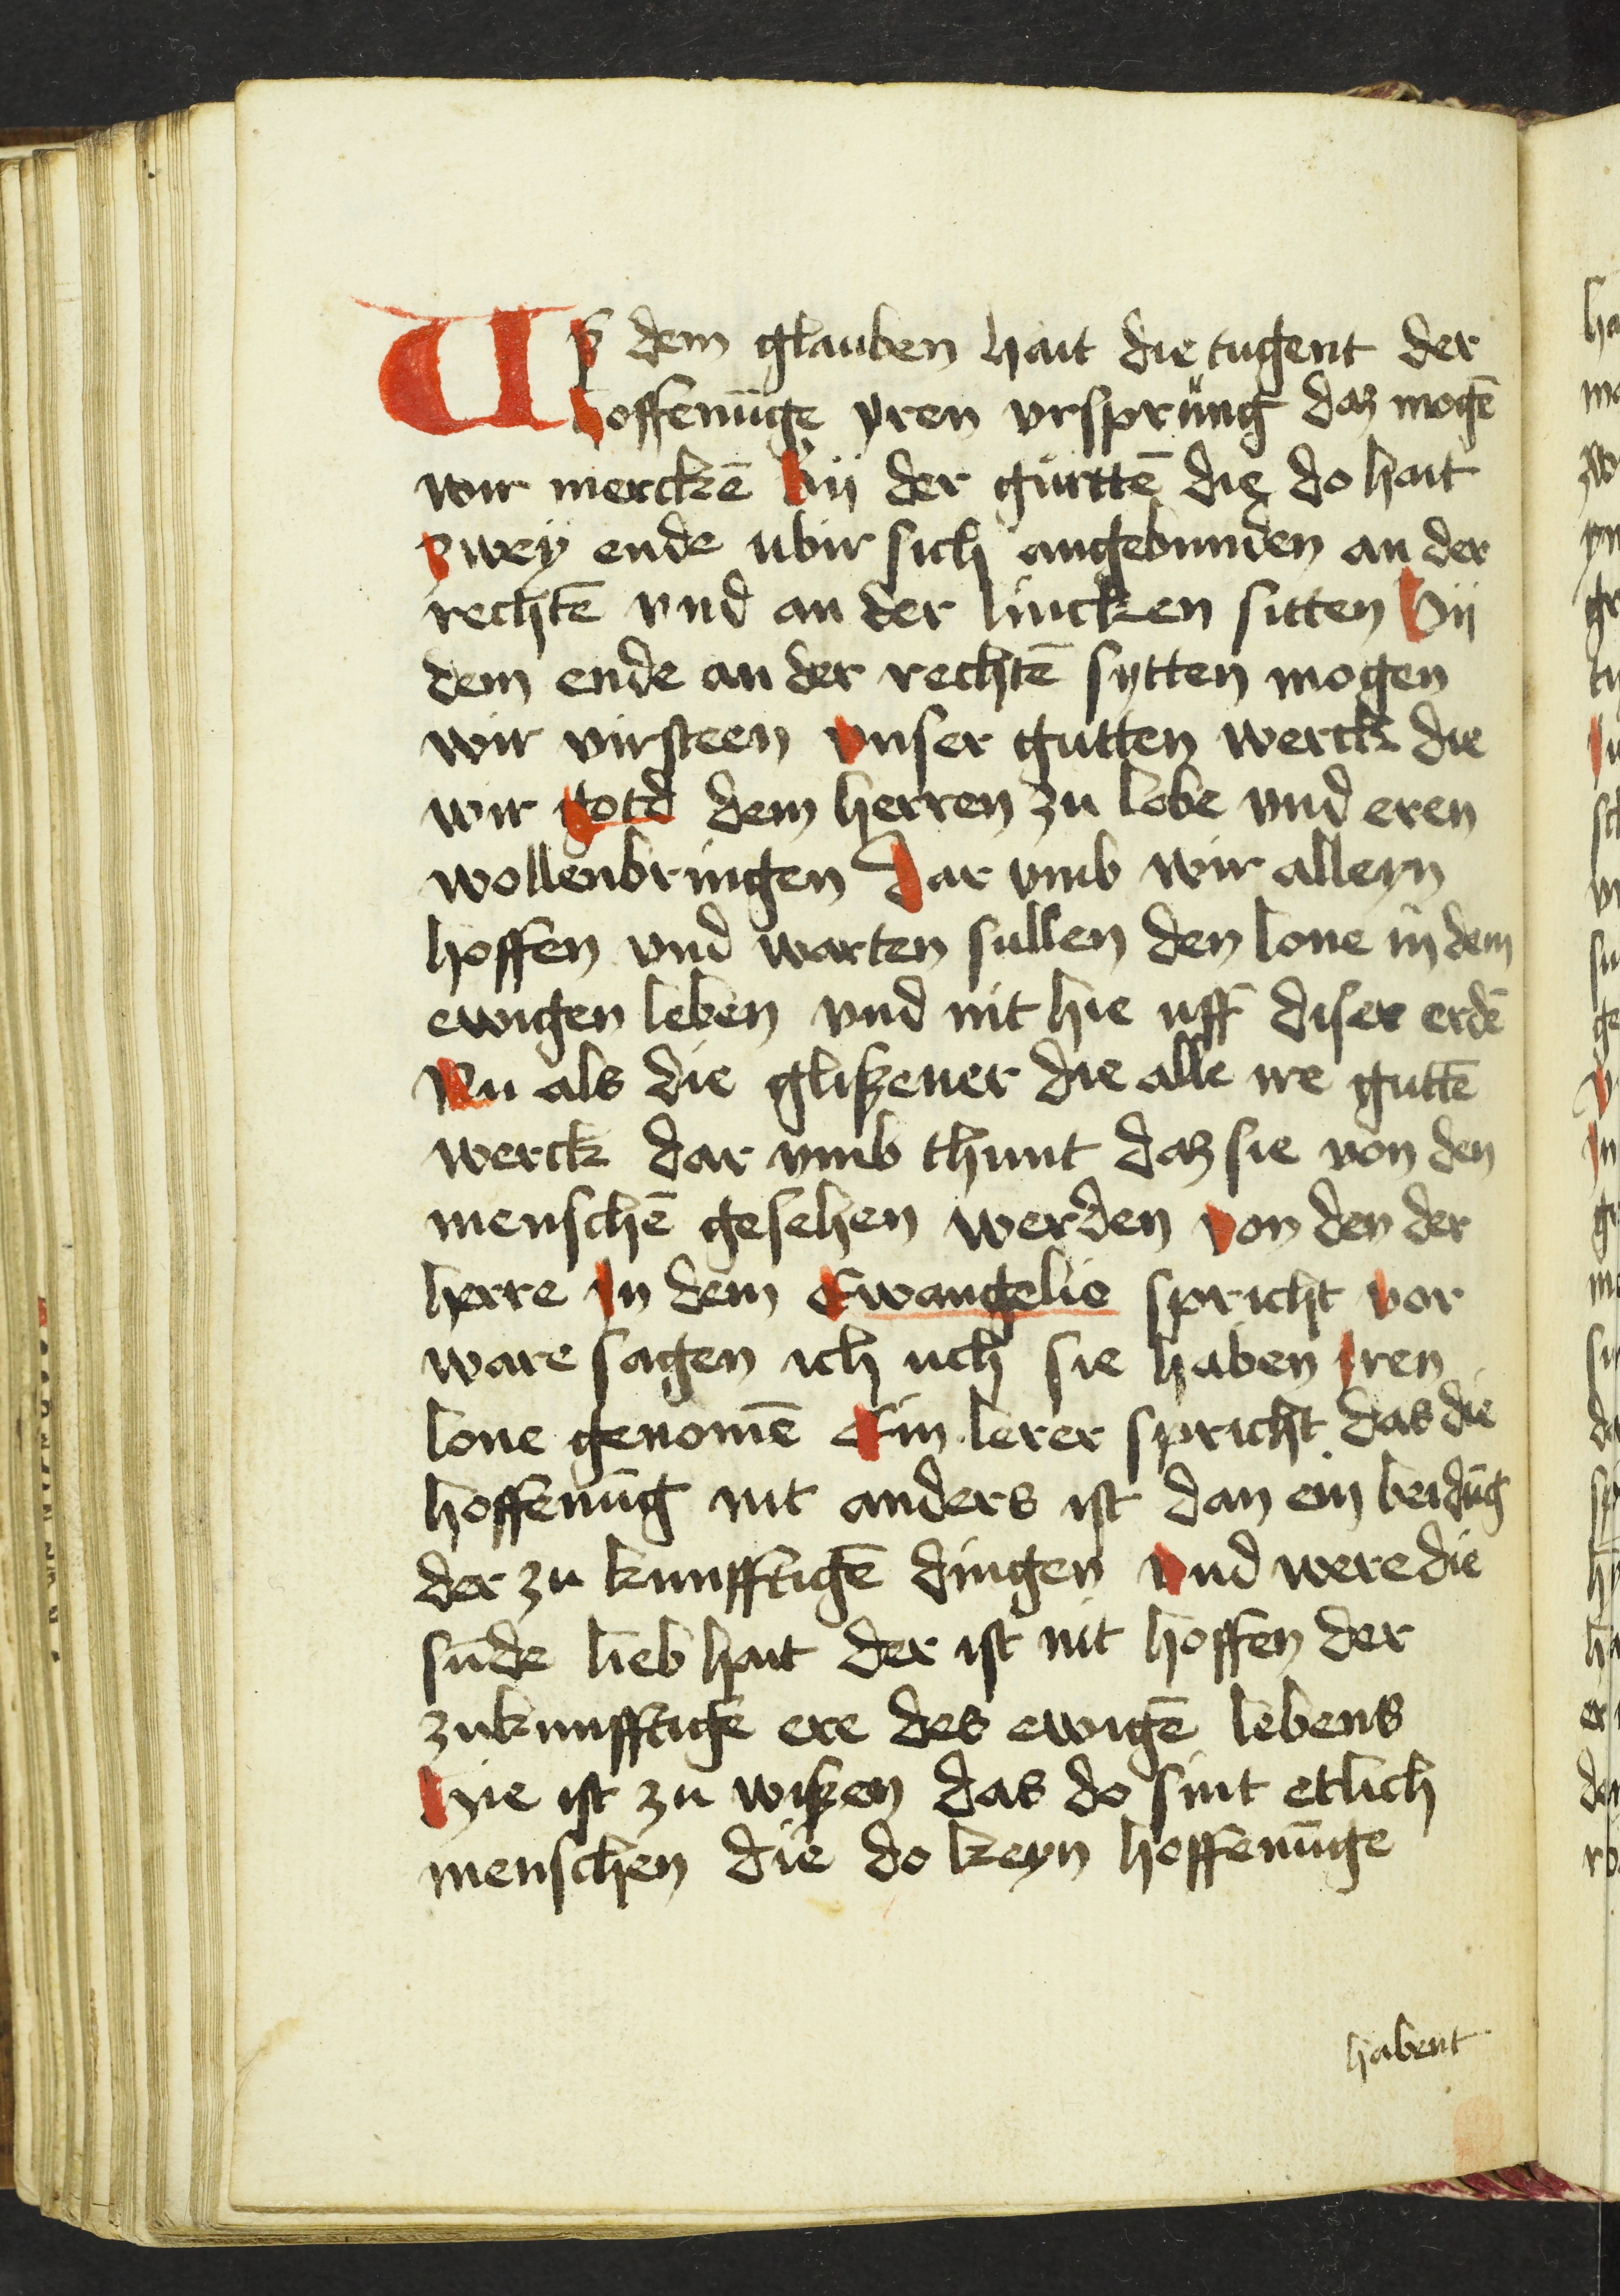 Uß dem glauben hait die tugent der
hoffenūge yren vrsprung daz mogē
wir merckē Bij der gurttē die do hait
zwey ende ubir sich angebunden an der
rechtē vnd an der lincken sitten Bij
dem ende an der rechtē sytten mogen
wir virsteen vnser gutten werck die
wir gotd dem herren zu lobe vnd eren
wollenbringen Dar vmb wir alleyn
hoffen vnd warten sullen den lone in dem
ewigen leben vnd nit hie uff diser erdē
Nu als die glißener die alle ire guttē
werck dar vmb thunt daz sie von den
menschē gesehen werden von den der
herre In dem Ewangelio spricht vor
ware sagen ich uch sie haben iren
lone genomē Ein lerer spricht das die
hoffenūg nit anders ist dan ein beidūg
der zu kunfftigē dingen vnd were die
sūde lieb hait der ist nit hoffen der
zukunfftigē ere des ewigē lebens
Hie ist zu wißen das do sint etlich
menschen die do keyn hoffenūge
habent